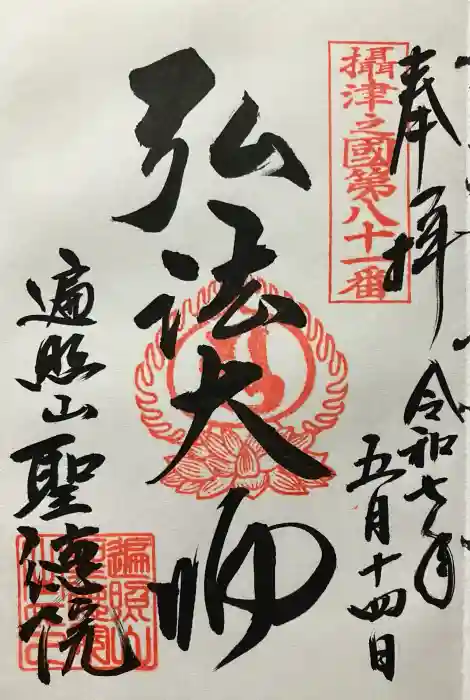 奉拝
令和七年
五月十四日
攝津之國第八十一番
弘法大師
遍照山聖徳院